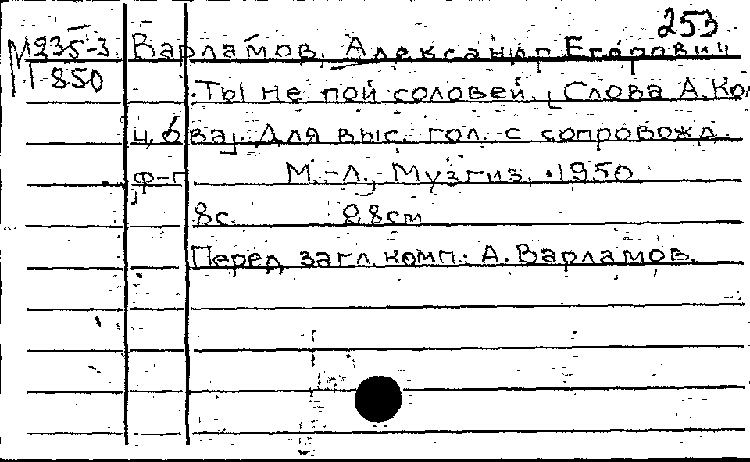 253
М235-3 Варламов, Александр Егорович
М-850
Ты не пой соловей. [Слова А. Кольцова]. Для выс. гол. с сопровожд.
ф-п. М.-Л., Музгиз, 1950
8с. 28см
Перед загл. комп.: А. Варламов.